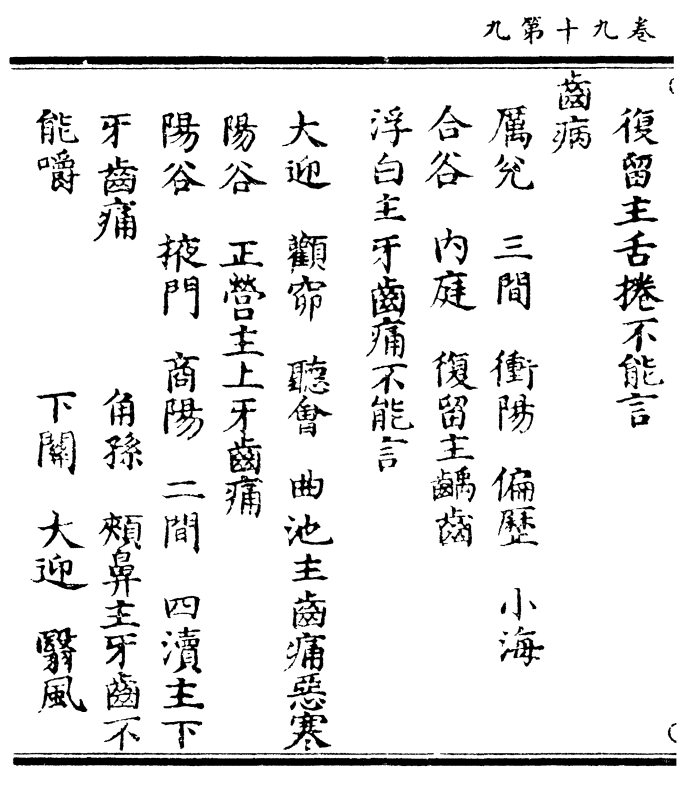 卷九十第九
復留主舌捲不能言
齒病
厲兊　三間　衝陽　偏歷　小海
合谷　內庭　復留主齲齒
浮白主牙齒痛不能言
大迎　顴窌　聽會　曲池主齒痛惡寒
陽谷　正營主上牙齒痛
陽谷　掖門　商陽　二間　四瀆主下
牙齒痛　角孫　頰鼻主牙齒不
能嚼　下關　大迎　翳風